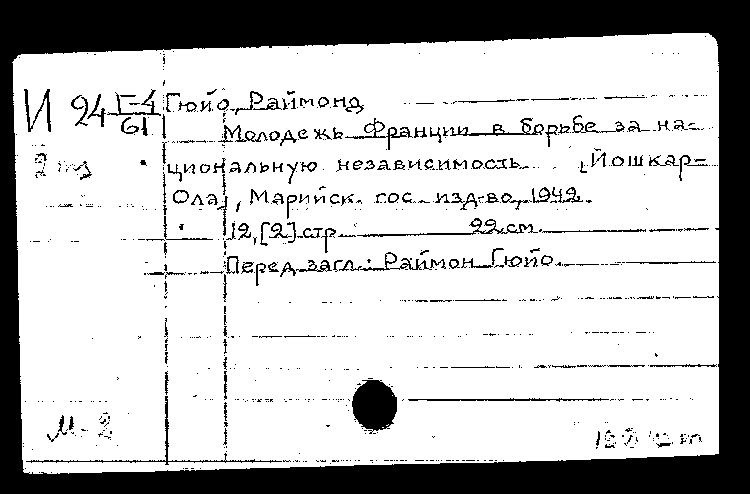 И 24 Г-4/61 Гюйо, Раймонд
Молодежь Франции в борьбе за на-
циональную независимость. [Йошкар-
Ола], Марийск. гос. изд-во, 1942.
12, [2] стр. 22 см.
Перед загл.: Раймон Гюйо.
М-2